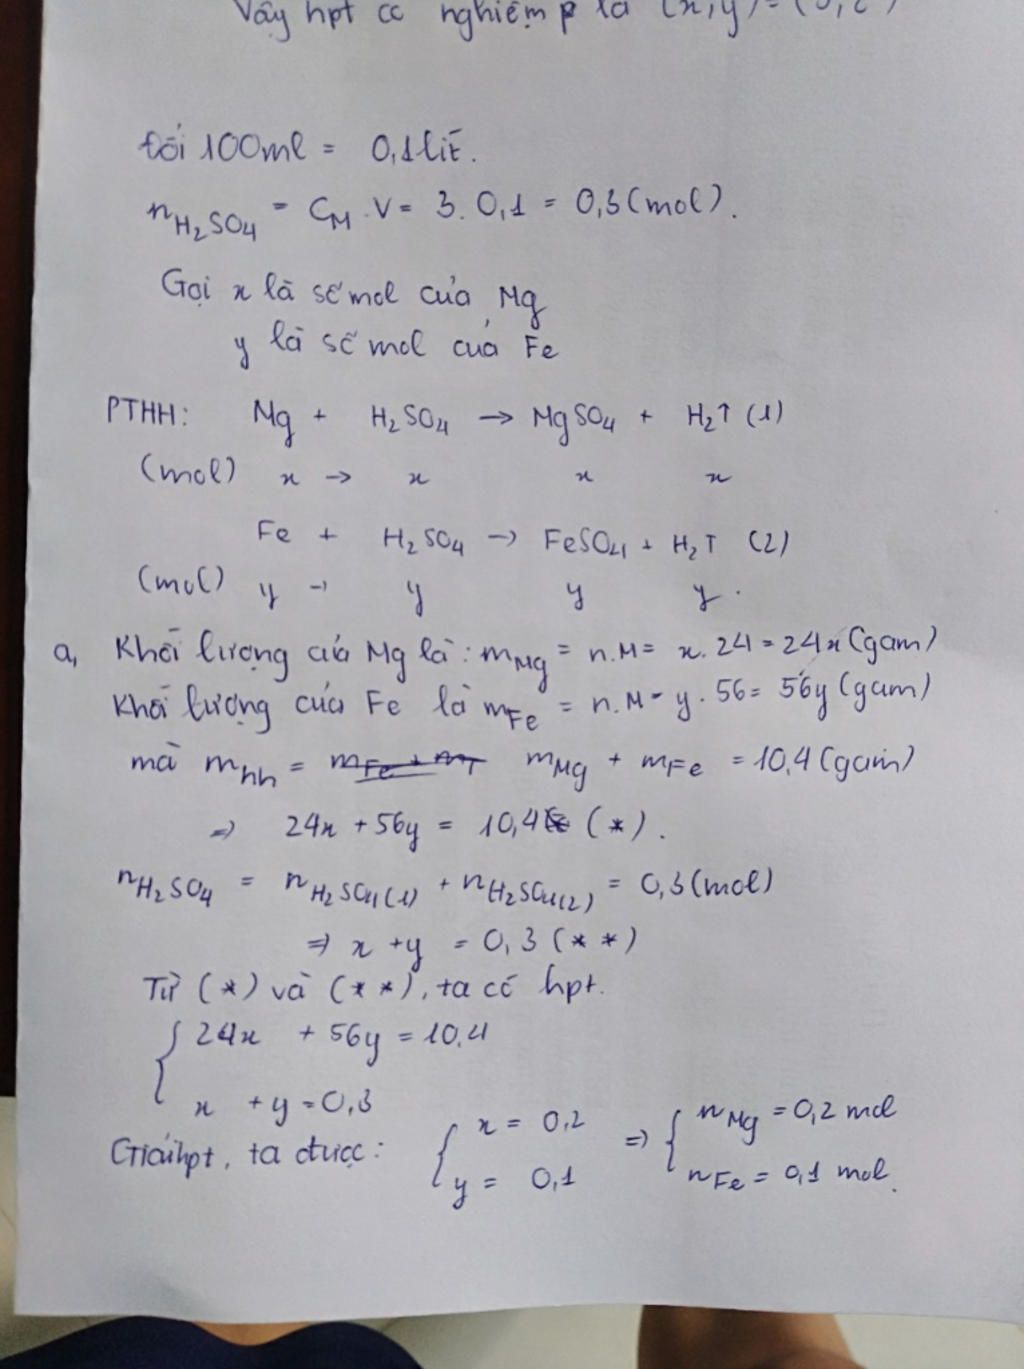 Vậy hpt có nghiệm là (x,y) =
Đổi 100ml = 0,1 lít.
nH₂SO₄ = CM.V = 3. 0,1 = 0,3 (mol).
Gọi x là số mol của Mg
y là số mol của Fe
PTHH: Mg + H₂SO₄ → MgSO₄ + H₂↑ (1)
(mol) x → x x x
Fe + H₂SO₄ → FeSO₄ + H₂↑ (2)
(mol) y → y y y.
a, Khối lượng của Mg là: mMg = n.M = x.24 = 24x (gam)
Khối lượng của Fe là mFe = n.M = y.56 = 56y (gam)
mà mhh = mMg + mFe = 10,4 (gam)
⇒ 24x + 56y = 10,4 (*).
nH₂SO₄ = nH₂SO₄(1) + nH₂SO₄(2) = 0,3 (mol)
⇒ x + y = 0,3 (**)
Từ (*) và (**), ta có hpt.
{ 24x + 56y = 10,4
x + y = 0,3
Giải hpt, ta được: { x = 0,2 ⇒ { nMg = 0,2 mol
y = 0,1 nFe = 0,1 mol.